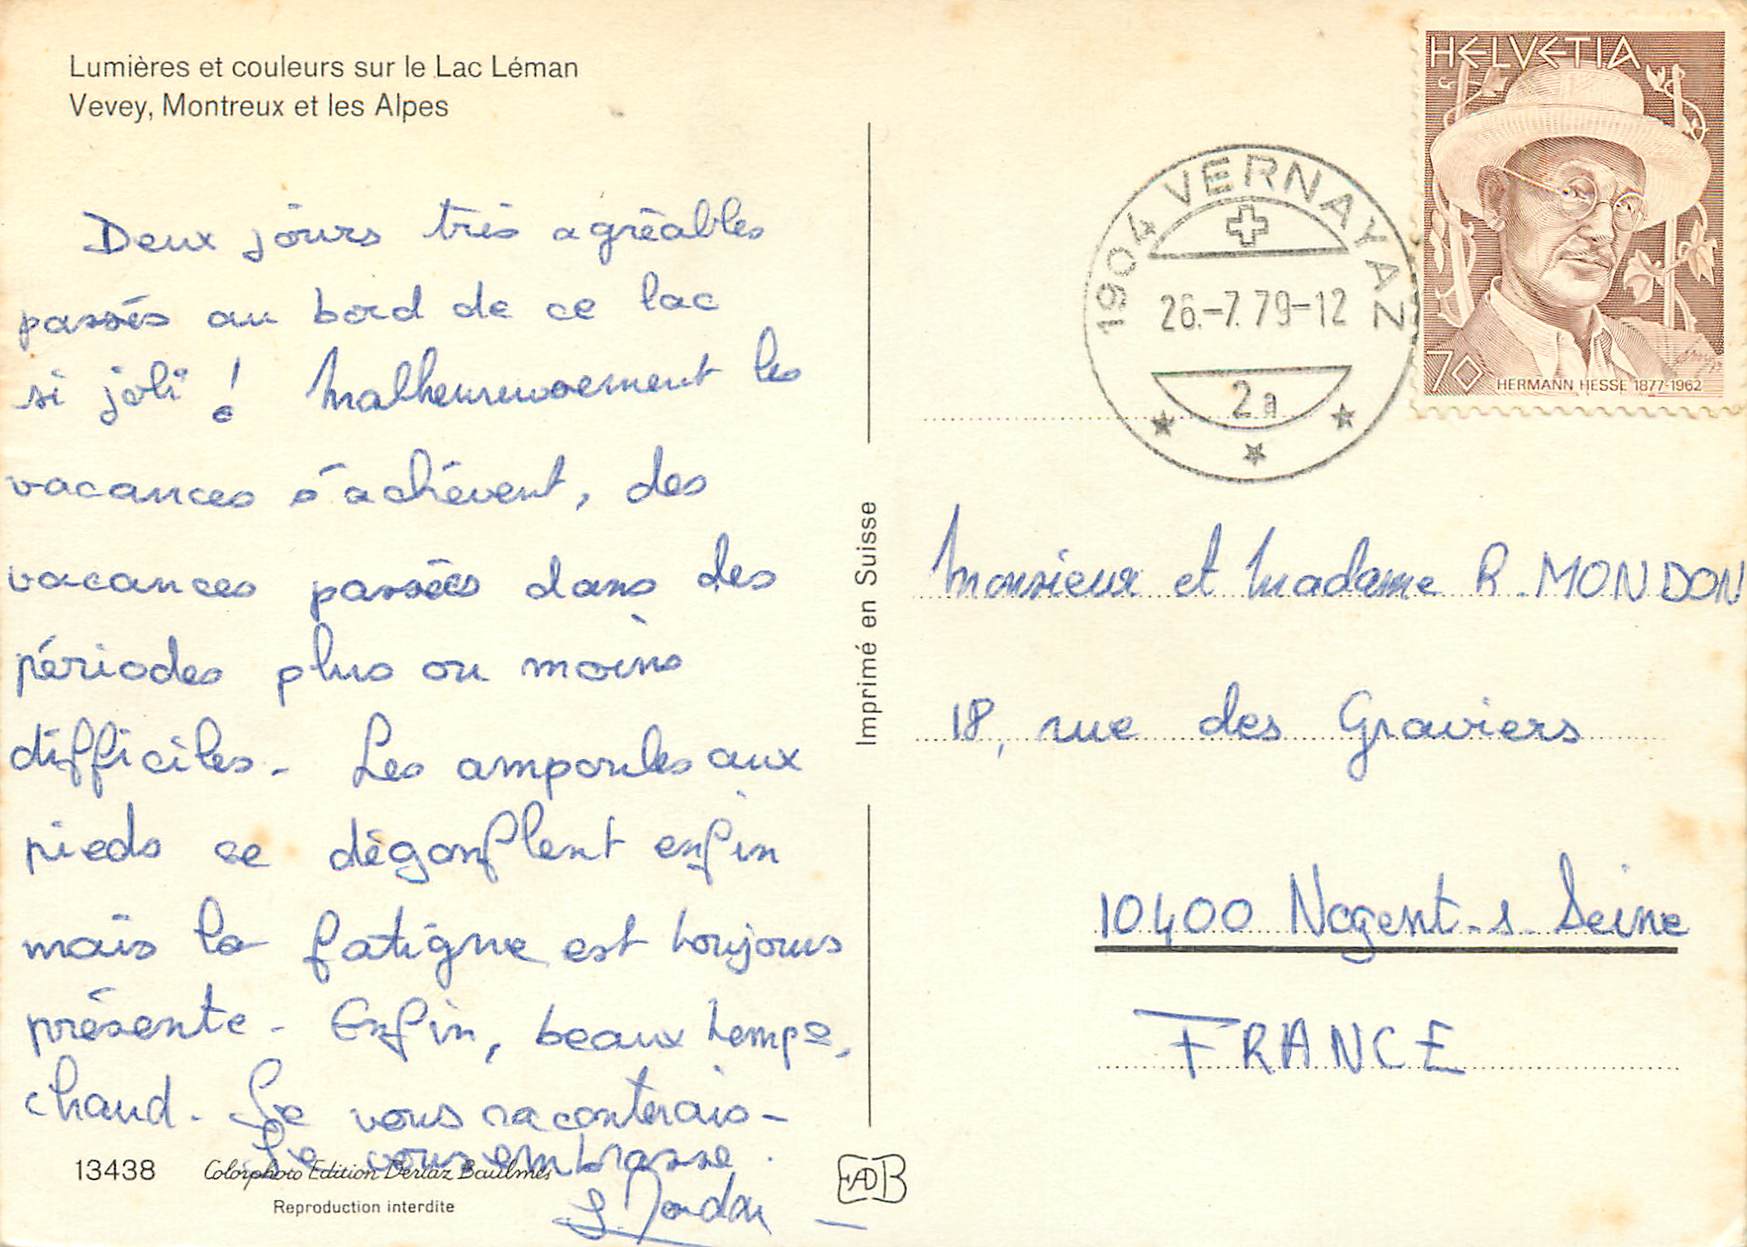 Lumières et couleurs sur le Lac Léman
Vevey, Montreux et les Alpes
Deux jours très agréables
passés au bord de ce lac
si joli ! Malheureusement les
vacances s'achèvent, des
vacances passées dans des
périodes plus ou moins
difficiles. Les ampoules aux
pieds se dégonflent enfin
mais la fatigue est toujours
présente. Enfin, beaux temps,
chaud. Je vous raconterais -
Je vous embrasse.
13438
Colorphoto Edition Dériaz Baulmes
Reproduction interdite
Imprimé en Suisse
EADB
1904 VERNAYAZ
26.-7.79-12
2a
HELVETIA
70
HERMANN HESSE 1877-1962
Monsieur et Madame R. MONDON
18, rue des Graviers
10400 Nogent-s-Seine
FRANCE